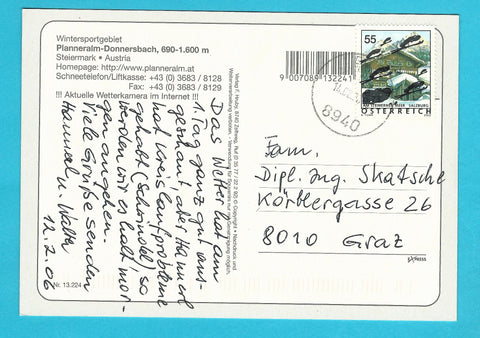 Wintersportgebiet
Planneralm-Donnersbach, 690-1.600 m
Steiermark • Austria
Homepage: http://www.planneralm.at
Schneetelefon/Liftkasse: +43 (0) 3683 / 8128
Fax: +43 (0) 3683 / 8129
!!! Aktuelle Wetterkamera im Internet !!!
Das Wetter hat am
1. Tag ganz gut aus-
geschaut, aber Hannerl
hat Kreislaufprobleme
gehabt (Schwindel), so
werden wir es halt mor-
gen angehen.
Viele Grüße senden
Hannerl u. Walter
12.2.06
Nr. 13.224
9 007089 132241
55
STEINERNES MEER SALZBURG
ÖSTERREICH
8940
Fam.
Dipl. Ing. Skatsche
Körblergasse 26
8010 Graz